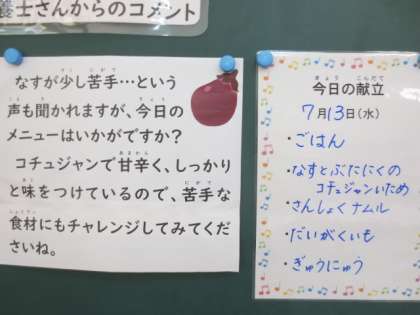 養士さんからのコメント
なすが少し苦手…という
声も聞かれますが、今日の
メニューはいかがですか？
コチュジャンで甘辛く、しっかり
と味をつけているので、苦手な
食材にもチャレンジしてみてくだ
さいね。
今日の献立
7月13日(水)
・ごはん
・なすとぶたにくの
コチュジャンいため
・さんしょくナムル
・だいがくいも
・ぎゅうにゅう